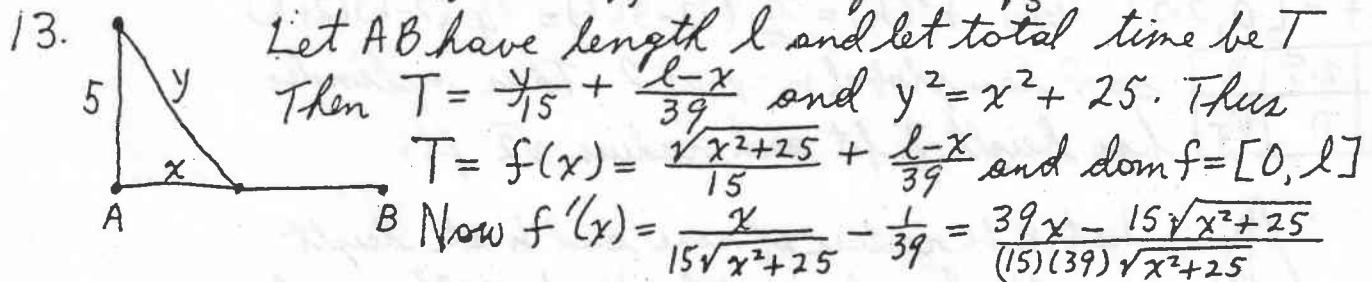 13. Let AB have length l and let total time be T
5 y Then T = y/15 + (l-x)/39 and y² = x² + 25. Thus
x T = f(x) = √(x²+25)/15 + (l-x)/39 and dom f = [0, l]
A B Now f'(x) = x/(15√(x²+25)) - 1/39 = (39x - 15√(x²+25))/((15)(39)√(x²+25))